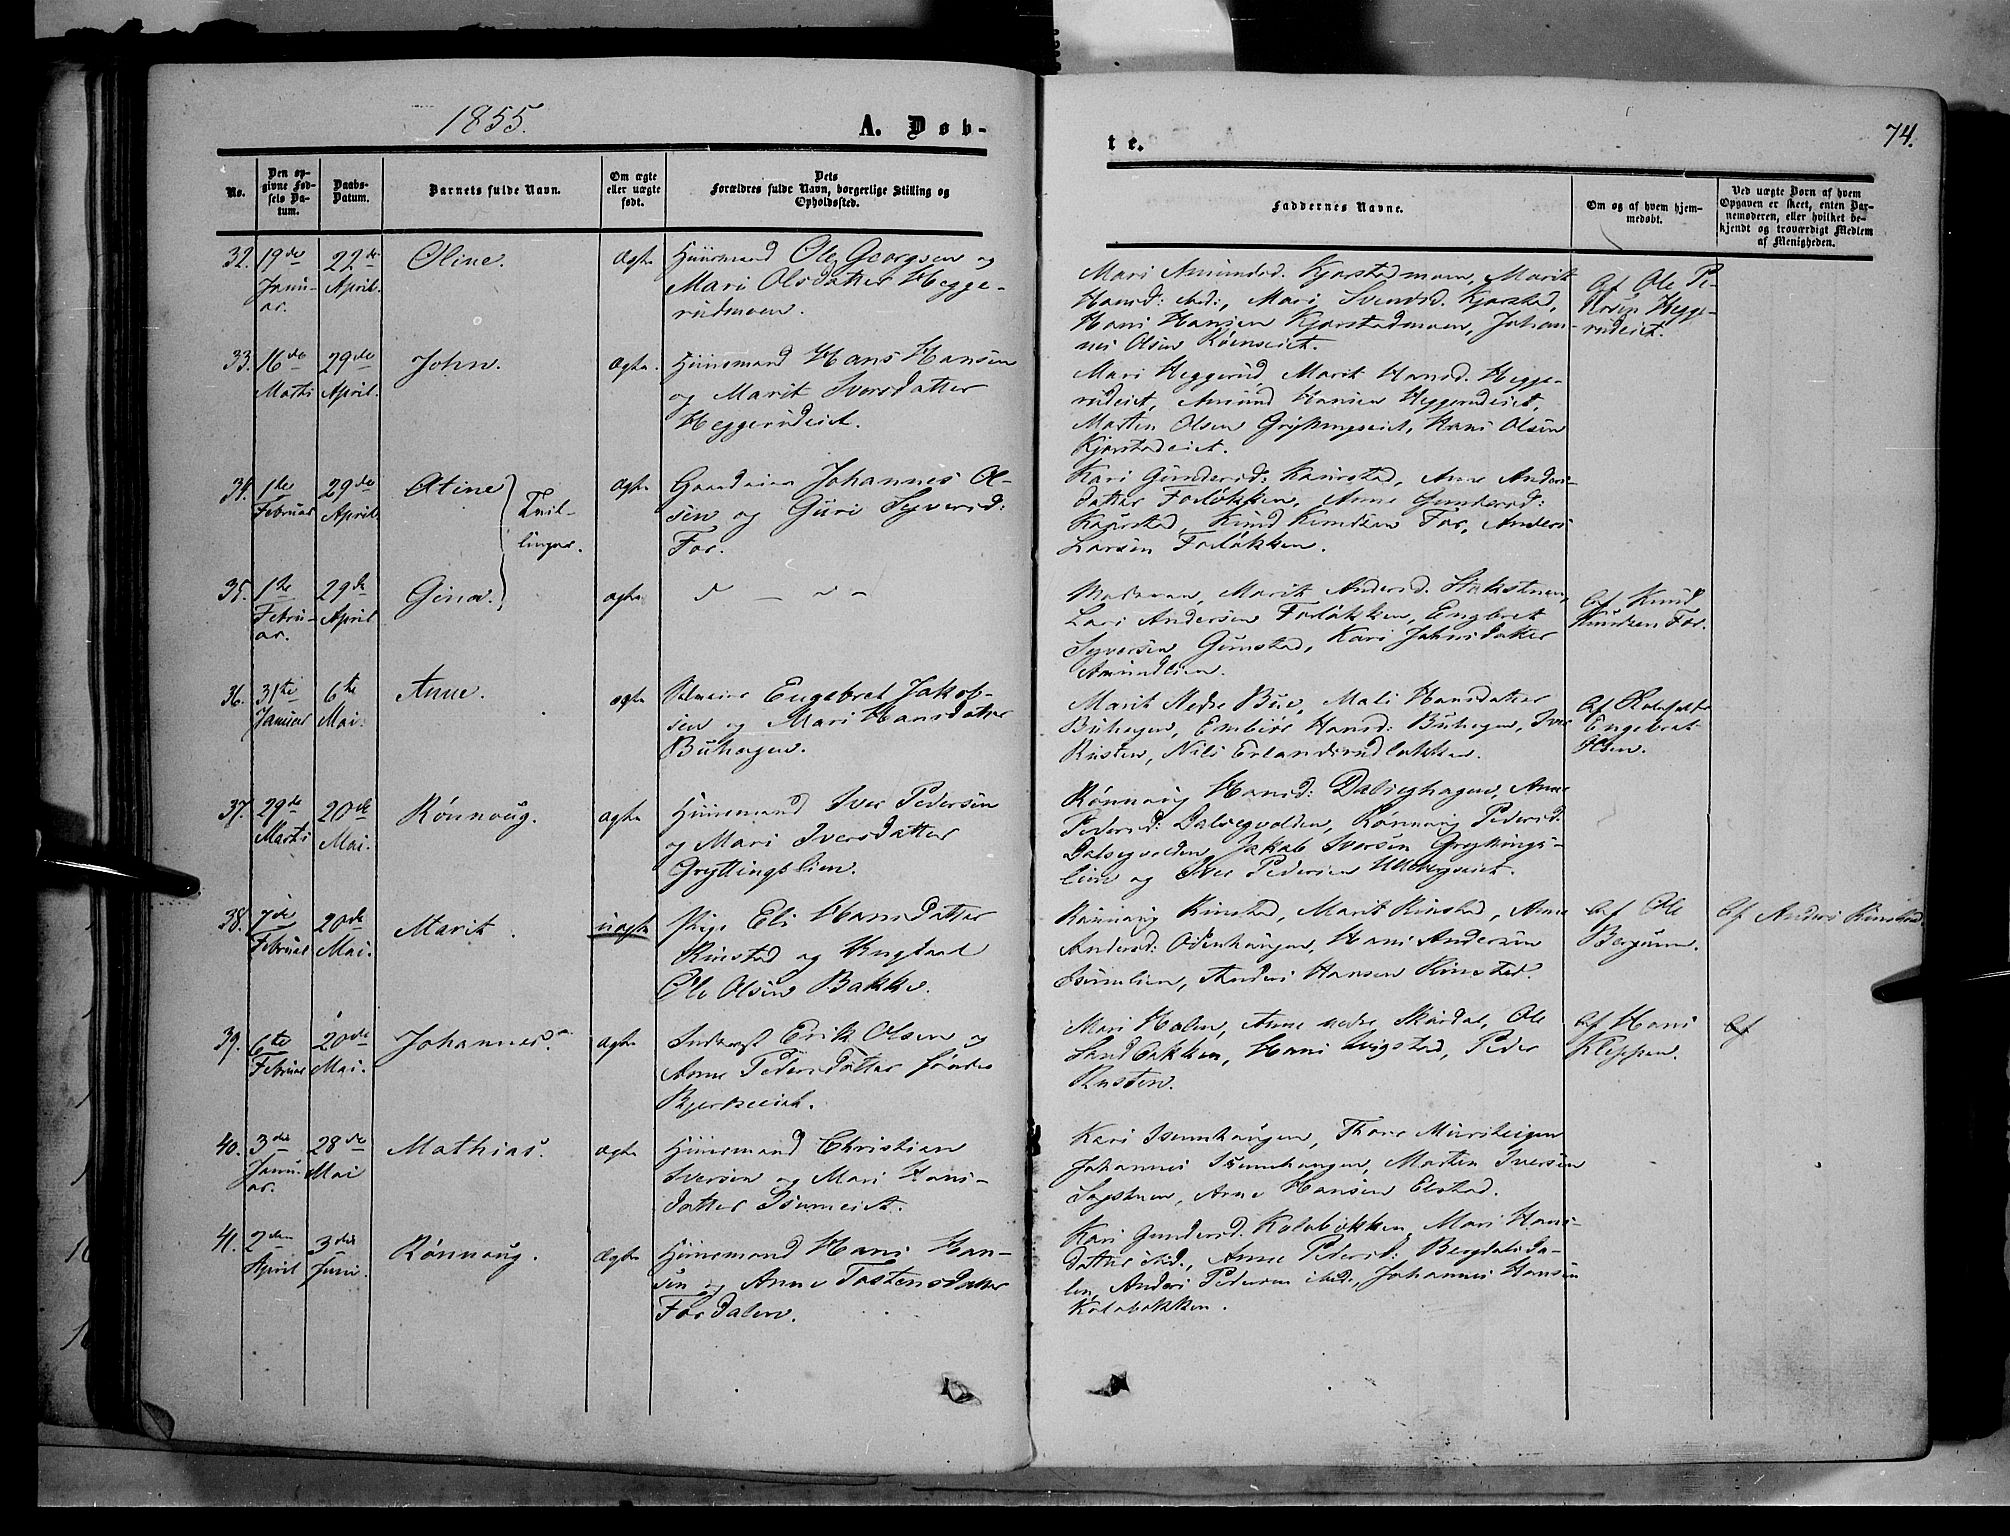 1855.
A. Døb-
te.
74.
No.
Den op-
givne Fød-
sels Da-
tum.
Daabs-
Datum.
Barnets fulde Navn.
Om ægte
eller uægte
født.
Dets
Forældres fulde Navn, borgerlige Stilling og
Opholdssted.
Faddernes Navne.
Om og af hvem hjem-
medøbt.
Ved uægte Born af hvem
Opgaven er skeet, enten Bar-
nemoderen, eller hvilket be-
kjendt og troværdigt Medlem
af Menigheden.
32. 19de Januar. 22de April. Oline. ægte
Huusmand Ole Georgsen og
Mari Olsdatter Hegge-
rudmoen.
Mari Amundsd. Kjorstadmoen, Marit
Hansd: ibid:, Mari Svendsd. Kjorstad,
Hans Hansen Kjorstadmoen, Johan-
nes Olsen
Af Ole Pe-
Hegge-
rudeiet.
33. 16de Marts 29de April. John. ægte.
Huusmand Hans Hansen
og Marit Iversdatter
Heggerudeiet.
Mari Heggerud, Marit Hansd. Hegge-
rudeiet, Amund Hansen Heggerudeiet,
Morten Olsen Gryttingseiet, Hans Olsen
Kjorstadeiet.
34. 1ste Februar 29de April. Oline Tvil-
linger. ægte
Gaardeier Johannes Ol-
sen og Guri Syversd:
For.
Kari Gundersd: Kaurstad, Anne Anders-
datter Forløkken, Anne Gundersd:
Kaurstad, Knud Knudsen For, Anders
Larsen Forløkken.
35. 1ste Februar. 29de April Gina. ægte
Marit Andersd.
Lars Andersen Forløkken, Engebret
Syversen Gunstad, Kari Johnsdatter
Amundlien.
Af Knud
Knudsen For.
36. 31te Januar 6te Mai. Anne. ægte
Engebret Jakob-
sen og Mari Hansdatter
Buhagen.
Marit Nedre Bue, Mali Hansdatter
Buhagen, Embiør Hansd: Buhagen, Iver
Rusten, Nils Erlandsrudløkken.
Af
Engebret
Olsen.
37. 29de Marts 20de Mai. Rønnaug. ægte
Huusmand Iver Pedersen
og Mari Iversdatter
Gryttingslien.
Rønnaug Hansd: Dalseghagen, Anne
Pedersd: Dalsegvolden, Rønnaug Pedersd.
Dalsegvolden, Jakob Iversen Gryttings-
lien og Iver Pedersen
38. 7de Februar 20de Mai. Marit. uægte
Pige Eli Hansdatter
Kinstad og Ungkarl
Ole Olsen Bakke.
Rønnaug Kinstad, Marit Kinstad, Anne
Andersd: Odenhaugen, Hans Andersen
Isumlien, Anders Hansen Kinstad.
Af Ole
Bergum.
Af Anders Kinstad.
39. 6te Februar 20de Mai. Johannes. ægte
Inderst Erik Olsen og
Anne Pedersdatter søndre
Bjerkeeiet.
Mari Holen, Anne nedre Skurdal, Ole
Sandbakken, Hans Wigstad, Peder
Rusten.
Af Hans
Kleppen.
Af
40. 3die Januar. 28de Mai Mathias. ægte
Huusmand Christian
Iversen og Mari Hans-
datter Isumeiet.
Kari Isumhaugen, Thore Mursteigen
Johannes Isumhaugen, Morten Iversen
Sagstuen, Arne Hansen Elstad.
41. 2den April 3die Juni. Rønnaug. Ægte
Huusmand Hans Han-
sen og Anne Tostensdatter
Fordalen.
Kari Gundersd. Kolobakken, Mari Hans-
datter ibid., Anne Pedersd: Bergdalsda-
len, Anders Pedersen ibid., Johannes Hansen
Kolobakken.